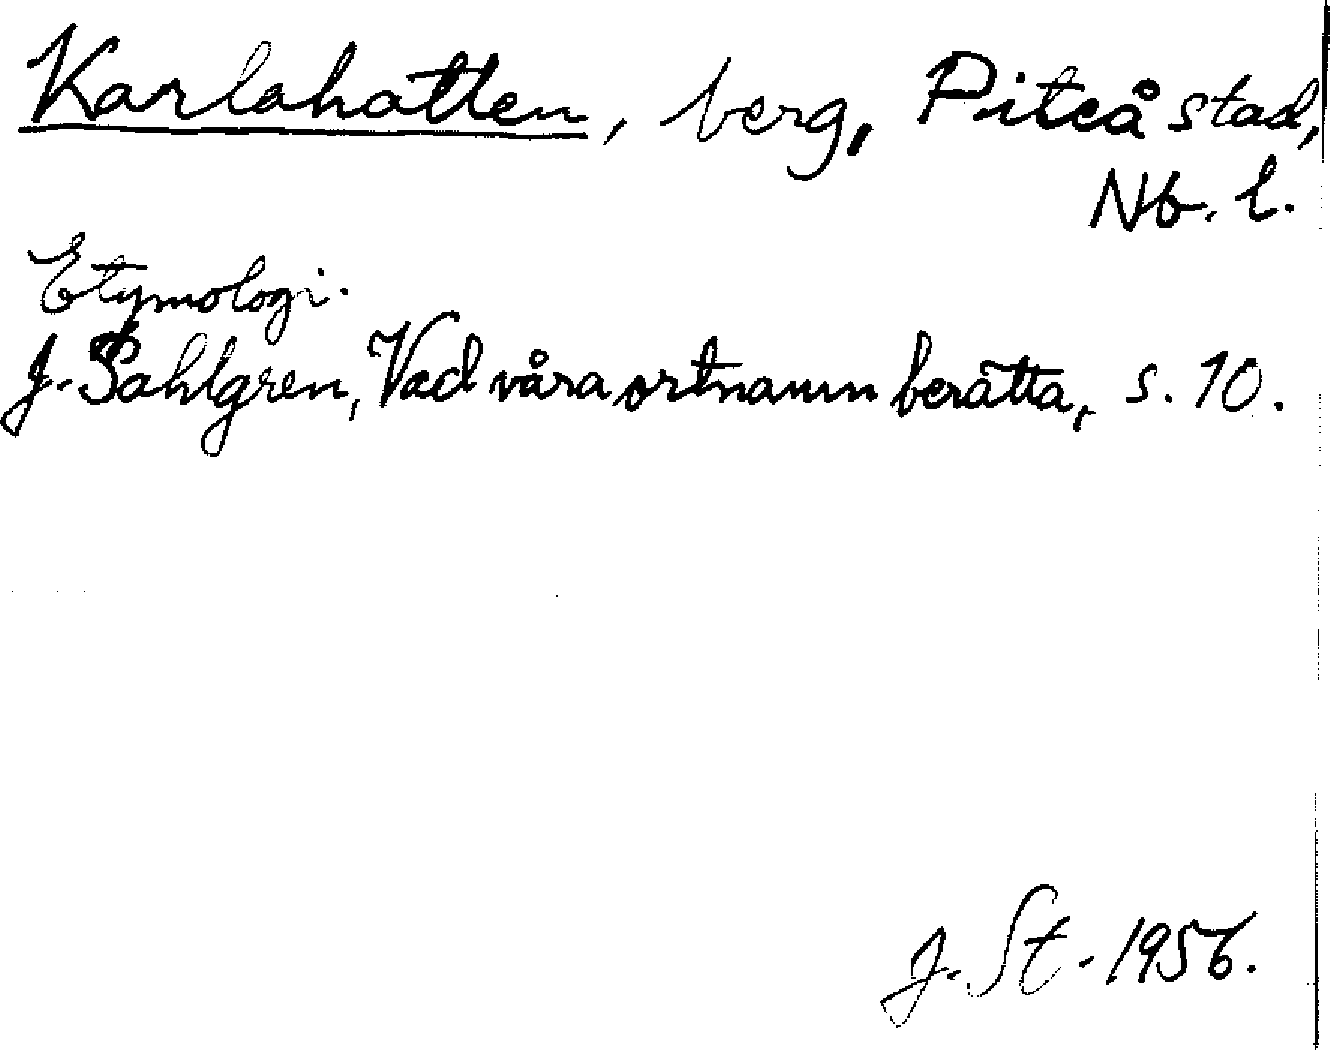 Karlahatten, berg, Piteå stad,
Nb. l.
Etymologi.
J. Sahlgren, Vad våra ortnamn berätta, s. 10.
J. St. 1956.